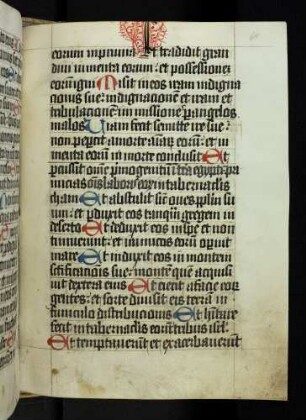 eorum in pruina Et tradidit gran
dini iumenta eorum : et possessionem
eorum igni Misit in eos iram indigna
cionis sue : indignacionem et iram et
tribulacionem inmissiones per angelos
malos Viam fecit semite ire sue :
non pepercit a morte animarum eorum : et iu
menta eorum in morte conclusit Et
percussit omne primogenitum in terra egypti : pri
micias omnis laboris eorum in tabernaculis
cham Et abstulit sicut oues populum su
um : et perduxit eos tanquam gregem in
deserto Et deduxit eos in spe et non
timuerunt : et inimicos eorum operuit
mare Et induxit eos in montem
sctificationis sue : montem quem acquisi
uit dextera eius Et eiecit a facie eorum
gentes : et sorte diuisit eis terram in
funiculo distribucionis Et habitare
fecit in tabernaculis eorum tribus isrl
Et temptauerunt et exacerbauerunt